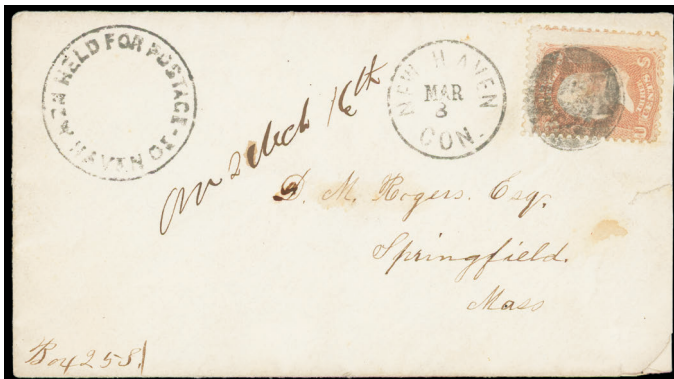 HELD FOR POSTAGE
NEW HAVEN CT
NEW HAVEN
MAR
3
CON.
U S
Mch 16th
D. M. Rogers. Esq.
Springfield.
Mass
Box 258.